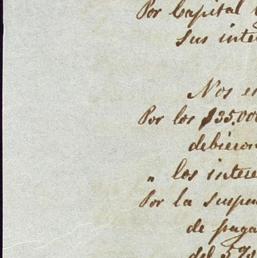 Por Capital
sus inte
Nos
Por los $35.000
debieron
" los intere
Por la suspen
de paga
del 5%